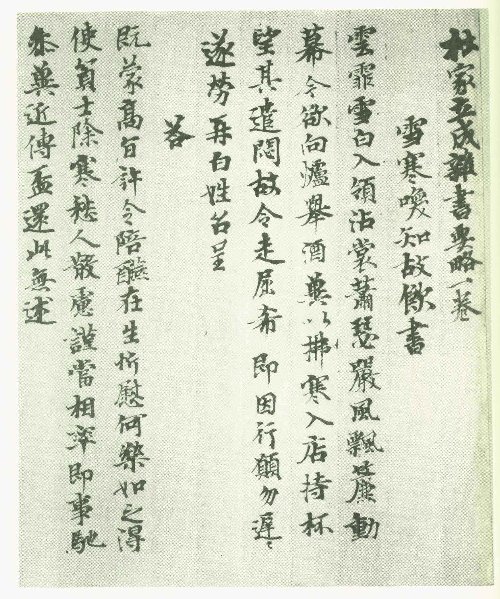 杜家立成雜書要略一卷
雪寒喚知故飲書
雲霏雪白入領沾裳蕭瑟嚴風飄塵動
幕今欲向爐舉酒冀以拂寒入店持杯
望其遣悶故令走屈希即因行願勿遲〻
遂勞再白姓名呈
答
既蒙高旨許令陪醼在生忻慰何樂如之得
使貧士除寒愁人散慮謹當相率即事馳
參冀近傳盃還此無述